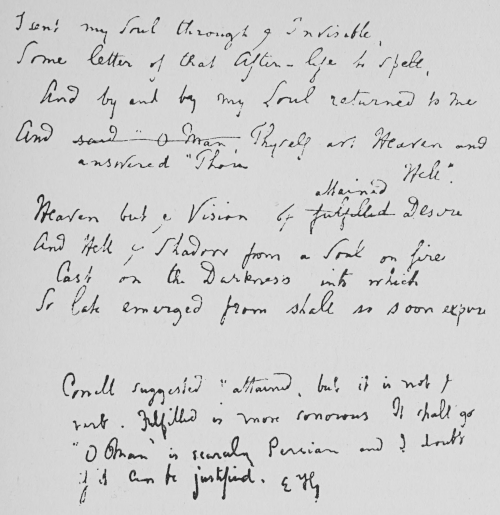 I sent my Soul through ye Invisible,
Some letter of that After-life to spell,
And by and bye my Soul returned to me
And said "O Man, Thyself art Heaven and
answered "Thou
Hell".
attained
Heaven but ye Vision of fulfilled Desire
And Hell ye Shadow from a Soul on fire
Cast on the Darkness into which
So late emerged from shall so soon expire
Cowell suggested "attained, but it is not ye
verb. Fulfilled is more sonorous It shall go
"O Man" is scarcely Persian and I doubt
if it can be justified.